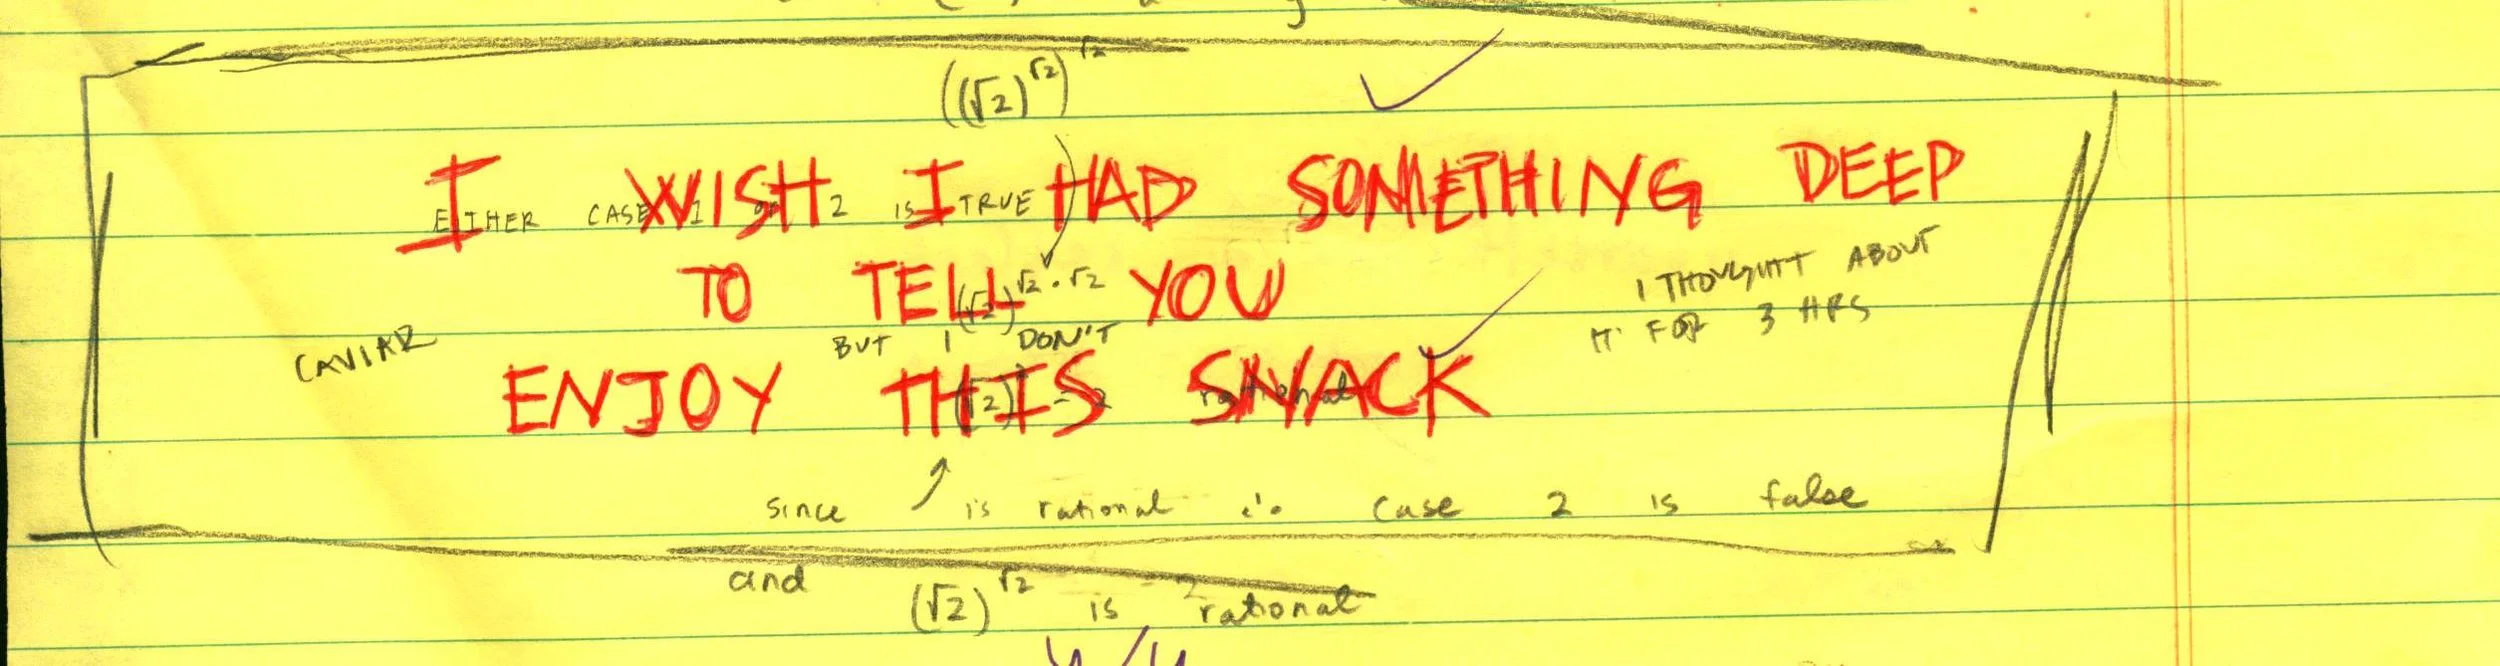 ((√2)^√2)^√2
I WISH I HAD SOMETHING DEEP
EITHER CASE 1 or 2 IS TRUE
TO TELL YOU
(√2)^√2·√2
I THOUGHT ABOUT
IT FOR 3 HRS
CAVIAR
BUT I DON'T
ENJOY THIS SNACK
(√2)² = 2 rational
since ↗ is rational ∴ case 2 is false
and (√2)^√2 is rational